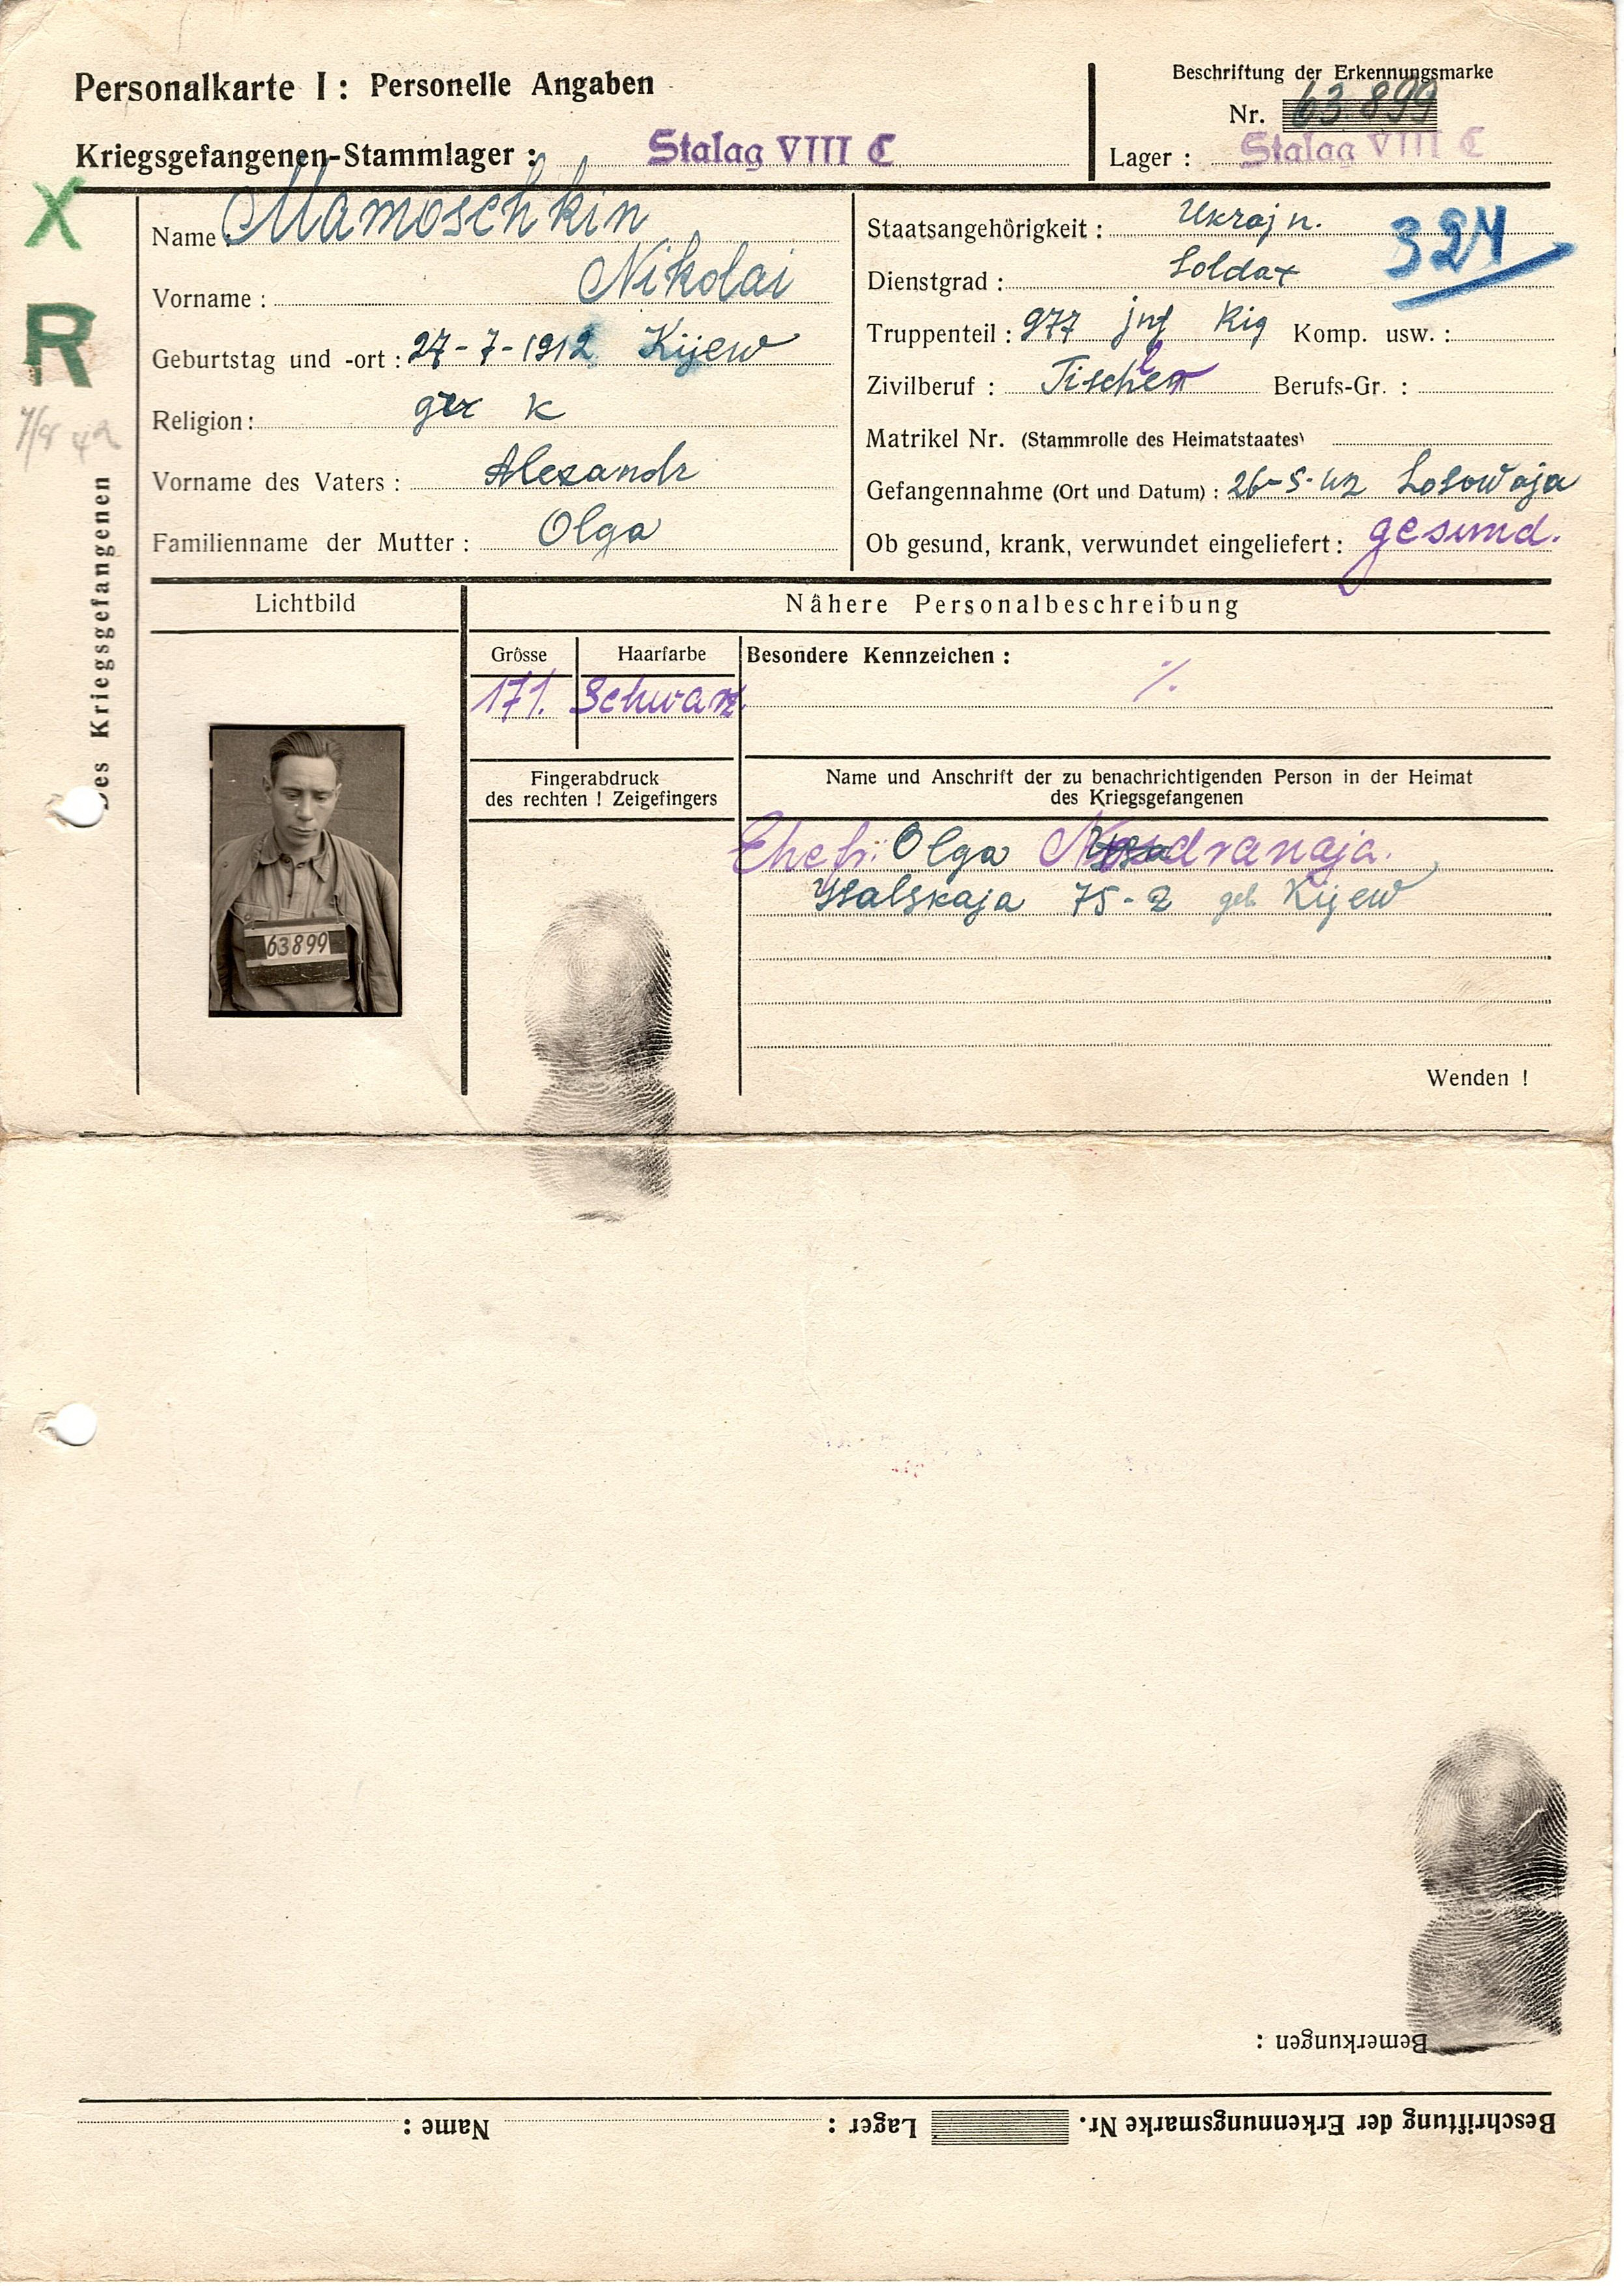 Personalkarte I: Personelle Angaben
Beschriftung der Erkennungsmarke
Nr. 63 899
Kriegsgefangenen-Stammlager: Stalag VIII C
Lager: Stalag VIII C
X
R
Des Kriegsgefangenen
Name: Mamoschkin
Vorname: Nikolai
Geburtstag und -ort: 27-7-1912 Kijew
Religion: K
Vorname des Vaters: Alexandr
Familienname der Mutter: Olga
Staatsangehörigkeit: Ukrajn.
324
Dienstgrad: Soldat
Truppenteil: 977 jnf Rig Komp. usw.:
Zivilberuf: Tischler Berufs-Gr.:
Matrikel Nr. (Stammrolle des Heimatstaates)
Gefangennahme (Ort und Datum): 26-5-42 Losowaja
Ob gesund, krank, verwundet eingeliefert: gesund.
Lichtbild
Nähere Personalbeschreibung
Grösse
171.
Haarfarbe
Schwarz.
Besondere Kennzeichen: %.
63899
Fingerabdruck
des rechten! Zeigefingers
Name und Anschrift der zu benachrichtigenden Person in der Heimat
des Kriegsgefangenen
Ehefr: Olga
75-2 geb Kijew
Wenden!
Bemerkungen:
Beschriftung der Erkennungsmarke Nr. Lager: Name: